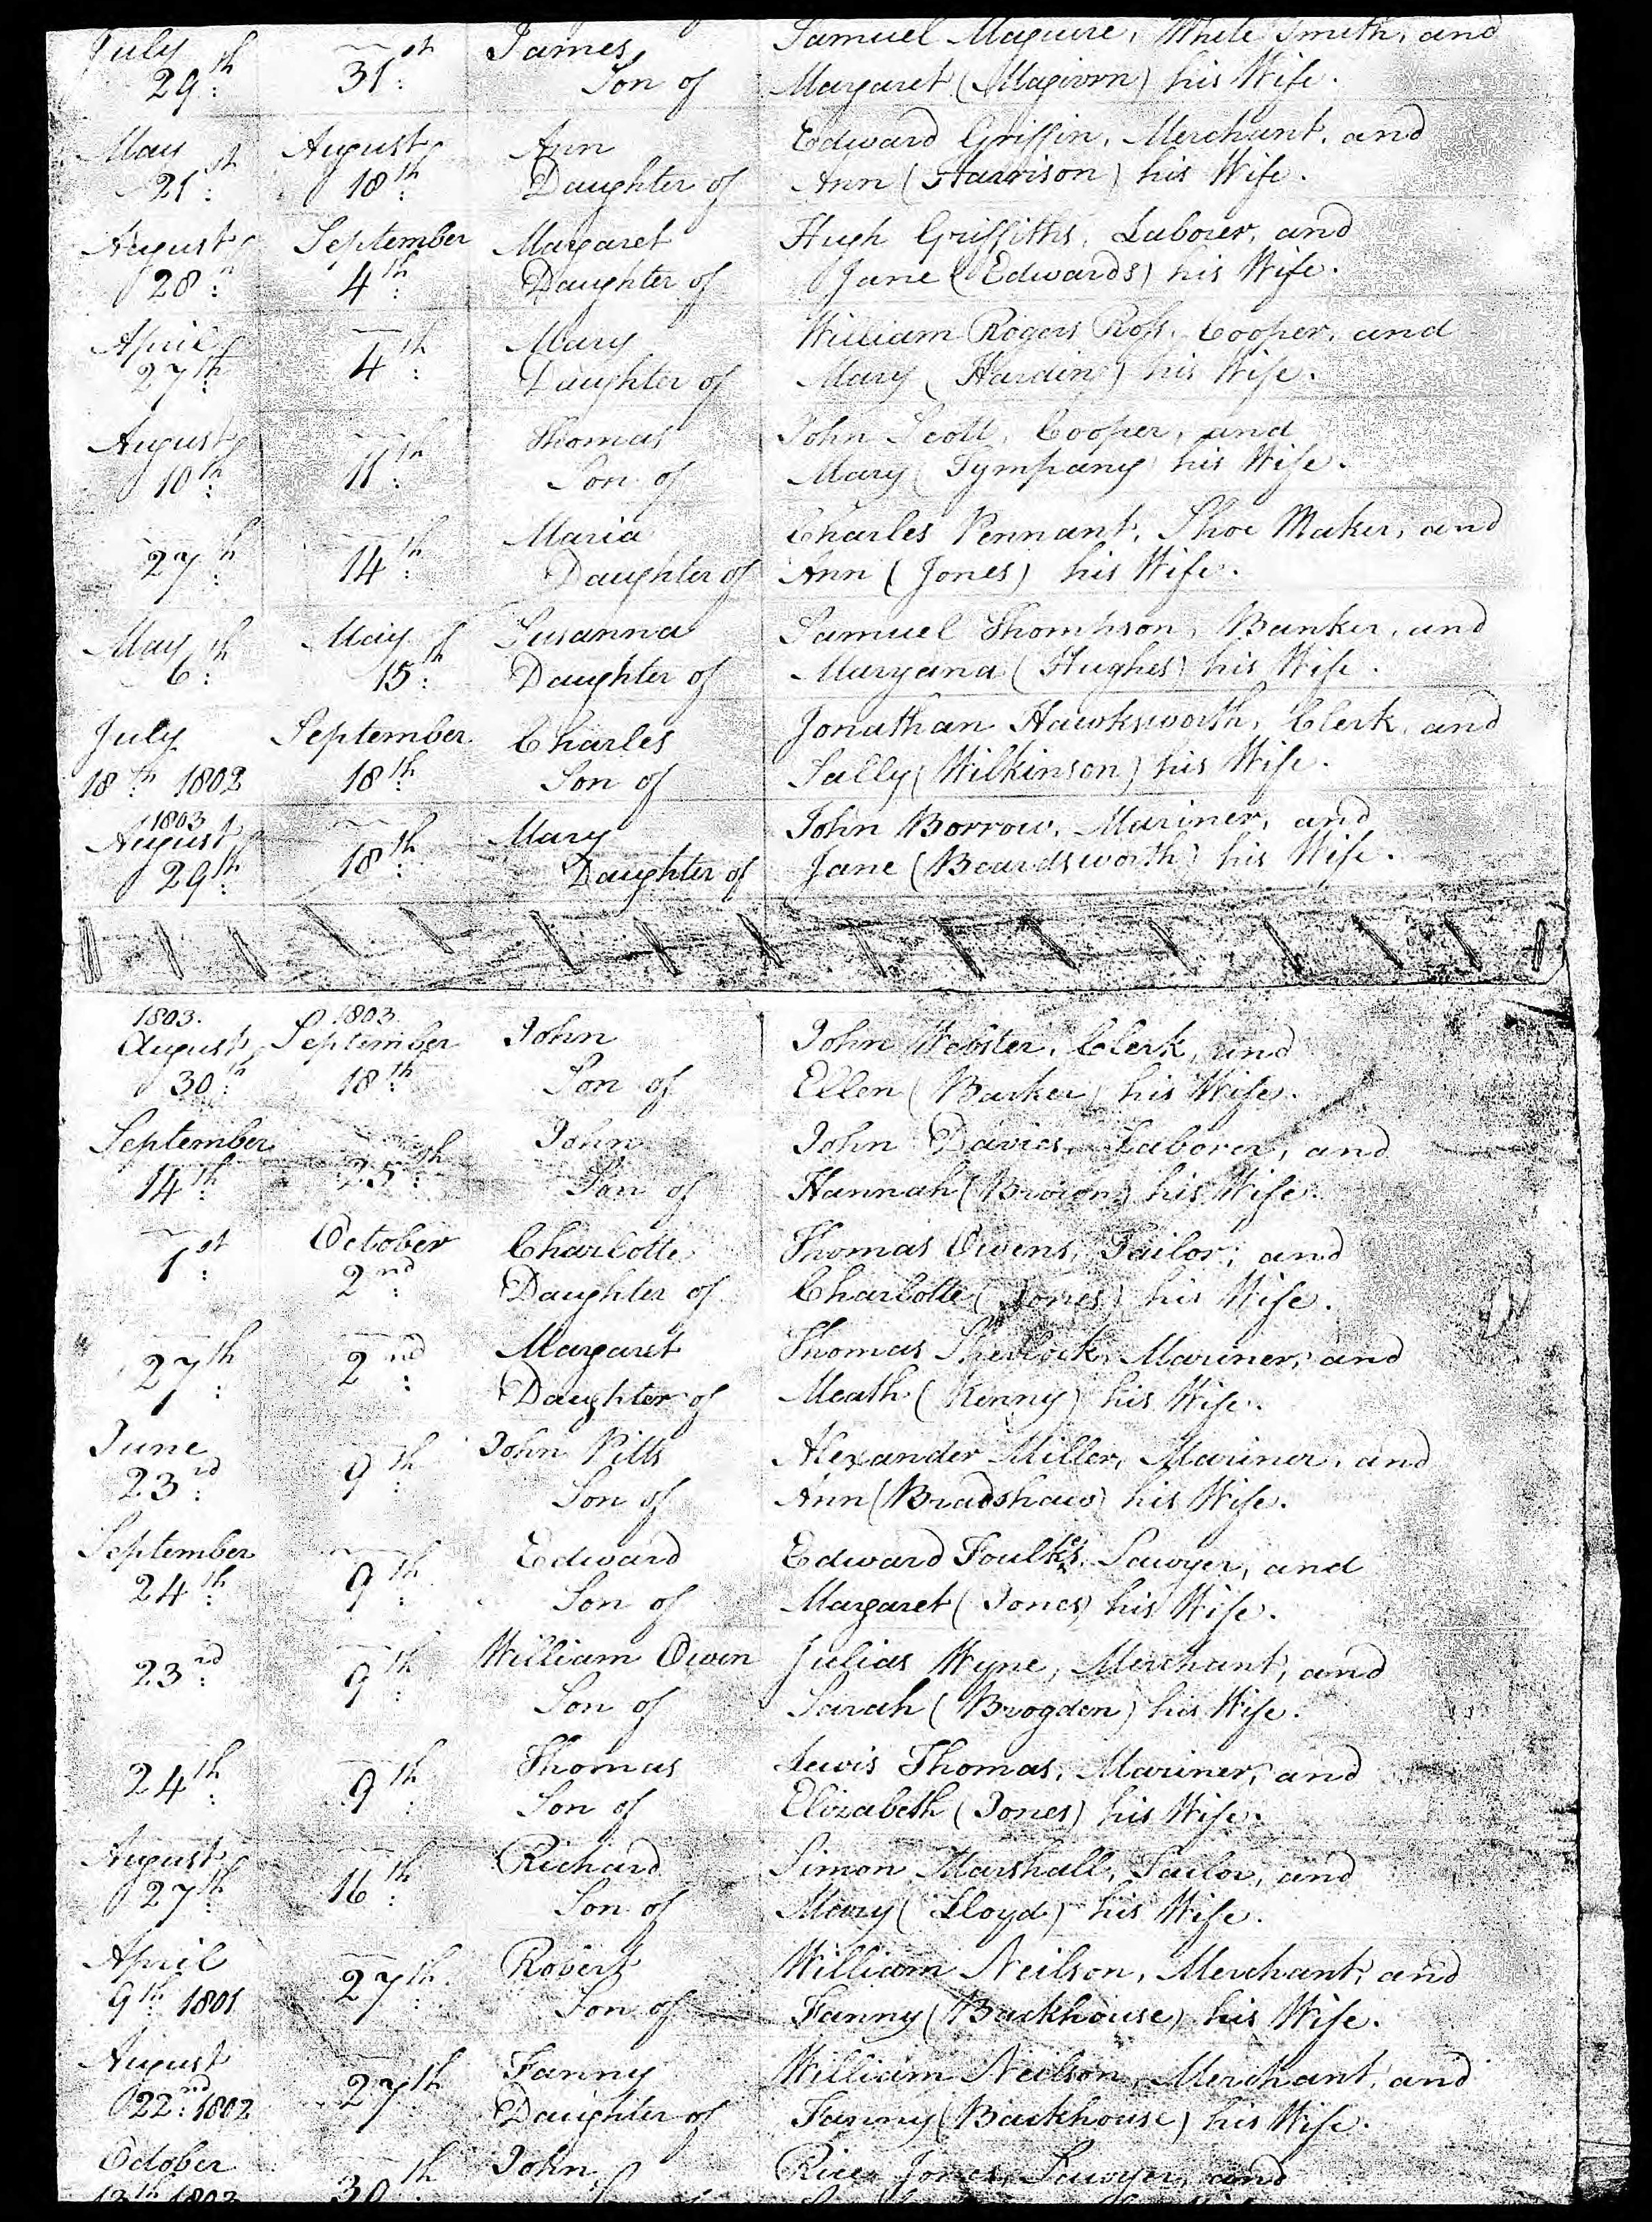 July 31st James Samuel Maguire, White Smith, and
29th: Son of Margaret (Magivorn) his Wife.
May August Ann Edward Griffin, Merchant, and
21st: 18th: Daughter of Ann (Harrison) his Wife.
August September Margaret Hugh Griffiths, Laborer, and
28th: 4th: Daughter of Jane (Edwards) his Wife.
April — Mary William Rogers Ross, Cooper, and
27th: 4th: Daughter of Mary (Harding) his Wife.
August — Thomas John Scott, Cooper, and
10th: 11th: Son of Mary (Tympany) his Wife.
— — Maria Charles Pennant, Shoe Maker, and
27th: 14th: Daughter of Ann (Jones) his Wife.
May May Susanna Samuel Thompson, Banker, and
6th: 15th: Daughter of Maryana (Hughes) his Wife.
July September Charles Jonathan Hawksworth, Clerk, and
18th: 1802 18th: Son of Sally (Wilkinson) his Wife.
1803
August — Mary John Borrow, Mariner, and
29th: 18th: Daughter of Jane (Beardsworth) his Wife.
1803. 1803
August September John John Webster, Clerk, and
30th: 18th: Son of Ellen (Barker) his Wife.
September — John John Davies, Laborer, and
14th: 25th: Son of Hannah (Brown) his Wife.
— October Charlotte Thomas Owens, Tailor, and
1st: 2nd: Daughter of Charlotte (Jones) his Wife.
— — Margaret Thomas Sherlock, Mariner, and
27th: 2nd: Daughter of Meath (Kenny) his Wife.
June — John Pitts Alexander Miller, Mariner, and
23rd: 9th: Son of Ann (Bradshaw) his Wife.
September — Edward Edward Foulkes, Sawyer, and
24th: 9th: Son of Margaret (Jones) his Wife.
— — William Owen Julias Wyne, Merchant, and
23rd: 9th: Son of Sarah (Brogden) his Wife.
— — Thomas Lewis Thomas, Mariner, and
24th: 9th: Son of Elizabeth (Jones) his Wife.
August — Richard Simon Marshall, Tailor, and
27th: 16th: Son of Mary (Lloyd) his Wife.
April — Robert William Neilson, Merchant, and
9th: 1801 27th: Son of Fanny (Backhouse) his Wife.
August — Fanny William Neilson, Merchant, and
22nd: 1802 27th: Daughter of Fanny (Backhouse) his Wife.
October — John Rice Jones, Sawyer, and
13th 1803 30th: